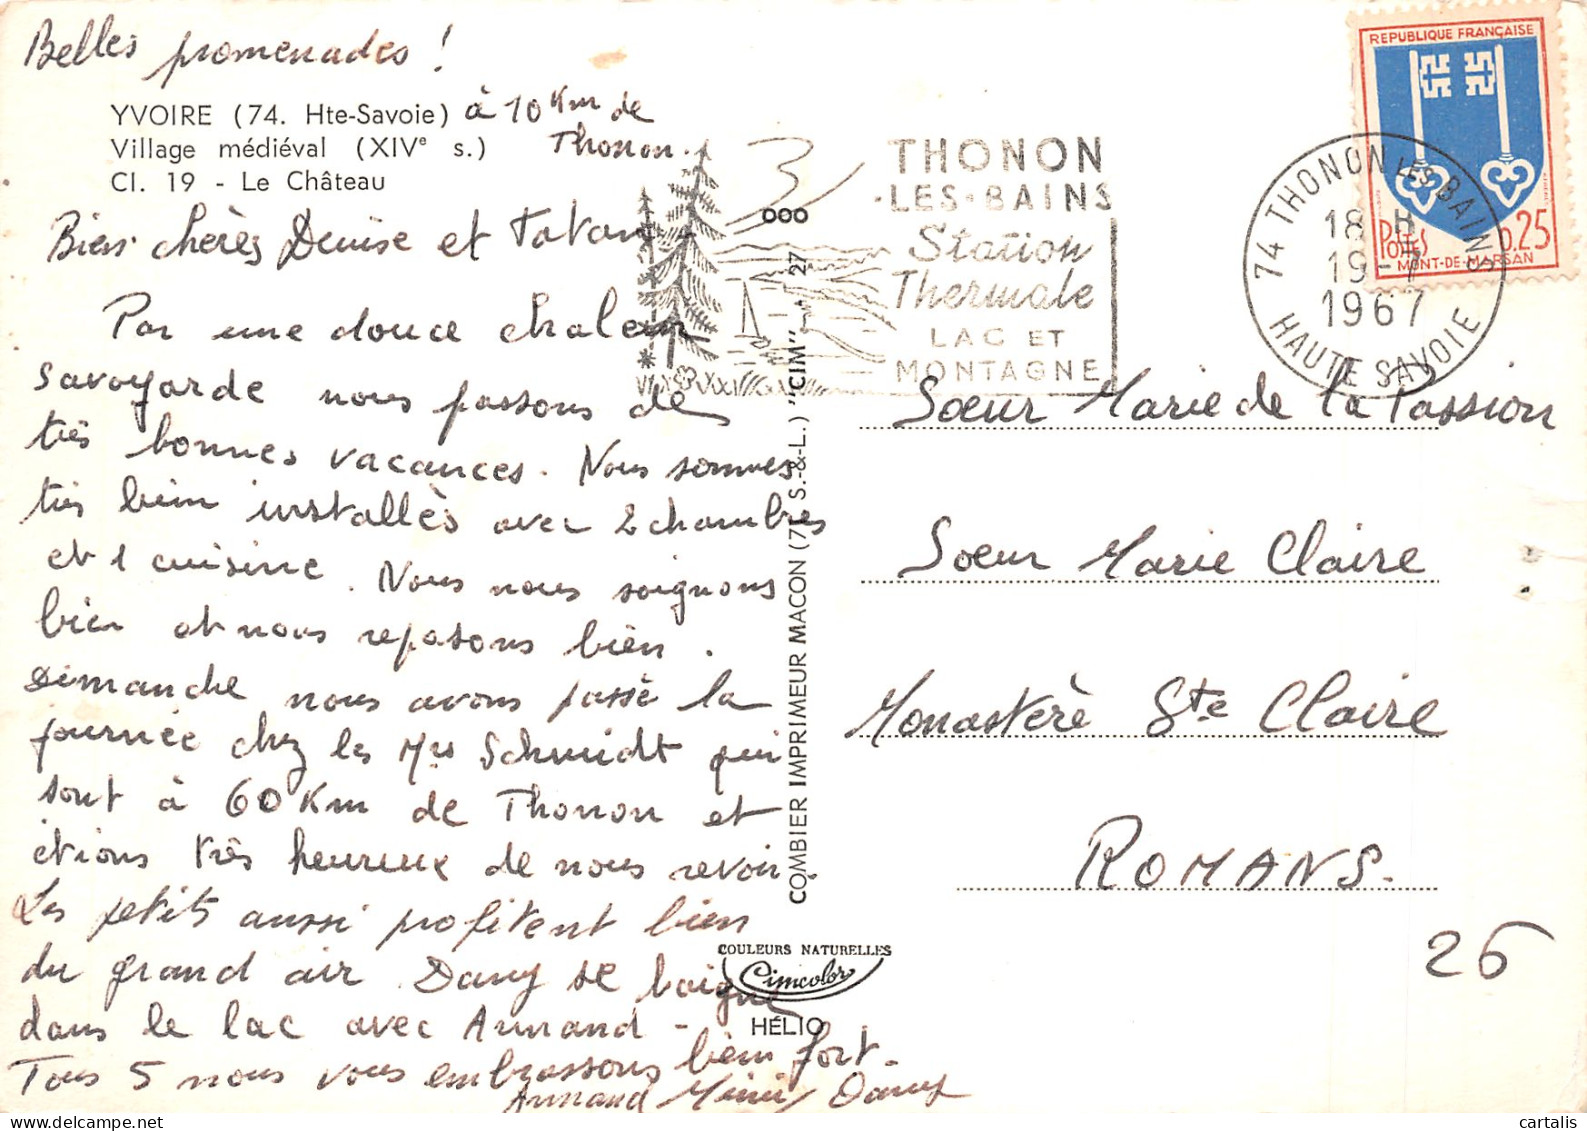 Belles promenades !
YVOIRE (74. Hte-Savoie) à 10 Km de
Village médiéval (XIVe s.) Thonon.
Cl. 19 - Le Château
Bien chères Denise et Tatan
Par une douce chaleur
savoyarde nous passons de
très bonnes vacances. Nous sommes
très bien installès avec 2 chambres
et 1 cuisine. Nous nous soignons
bien et nous reposons bien.
Dimanche nous avons passè la
journée chez les Mrs Schmidt qui
sont à 60 Km de Thonon et
étions très heureux de nous revoir.
Les petits aussi profitent bien
du grand air. Dany se baigne
dans le lac avec Armand -
Tous 5 nous vous embrassons bien fort.
Armand Mimi Dany
COMBIER IMPRIMEUR MACON (71 S.-&-L.) "CIM"
27
COULEURS NATURELLES
Cimcolor
HÉLIO
THONON
·LES·BAINS
Station
Thermale
LAC ET
MONTAGNE
74 THONON LES BAINS
18 H
19-7
1967
HAUTE SAVOIE
REPUBLIQUE FRANÇAISE
POSTES 0.25
MONT-DE-MARSAN
Sœur Marie de la Passion
Soeur Marie Claire
Monastère Ste Claire
ROMANS.
26
cartalis